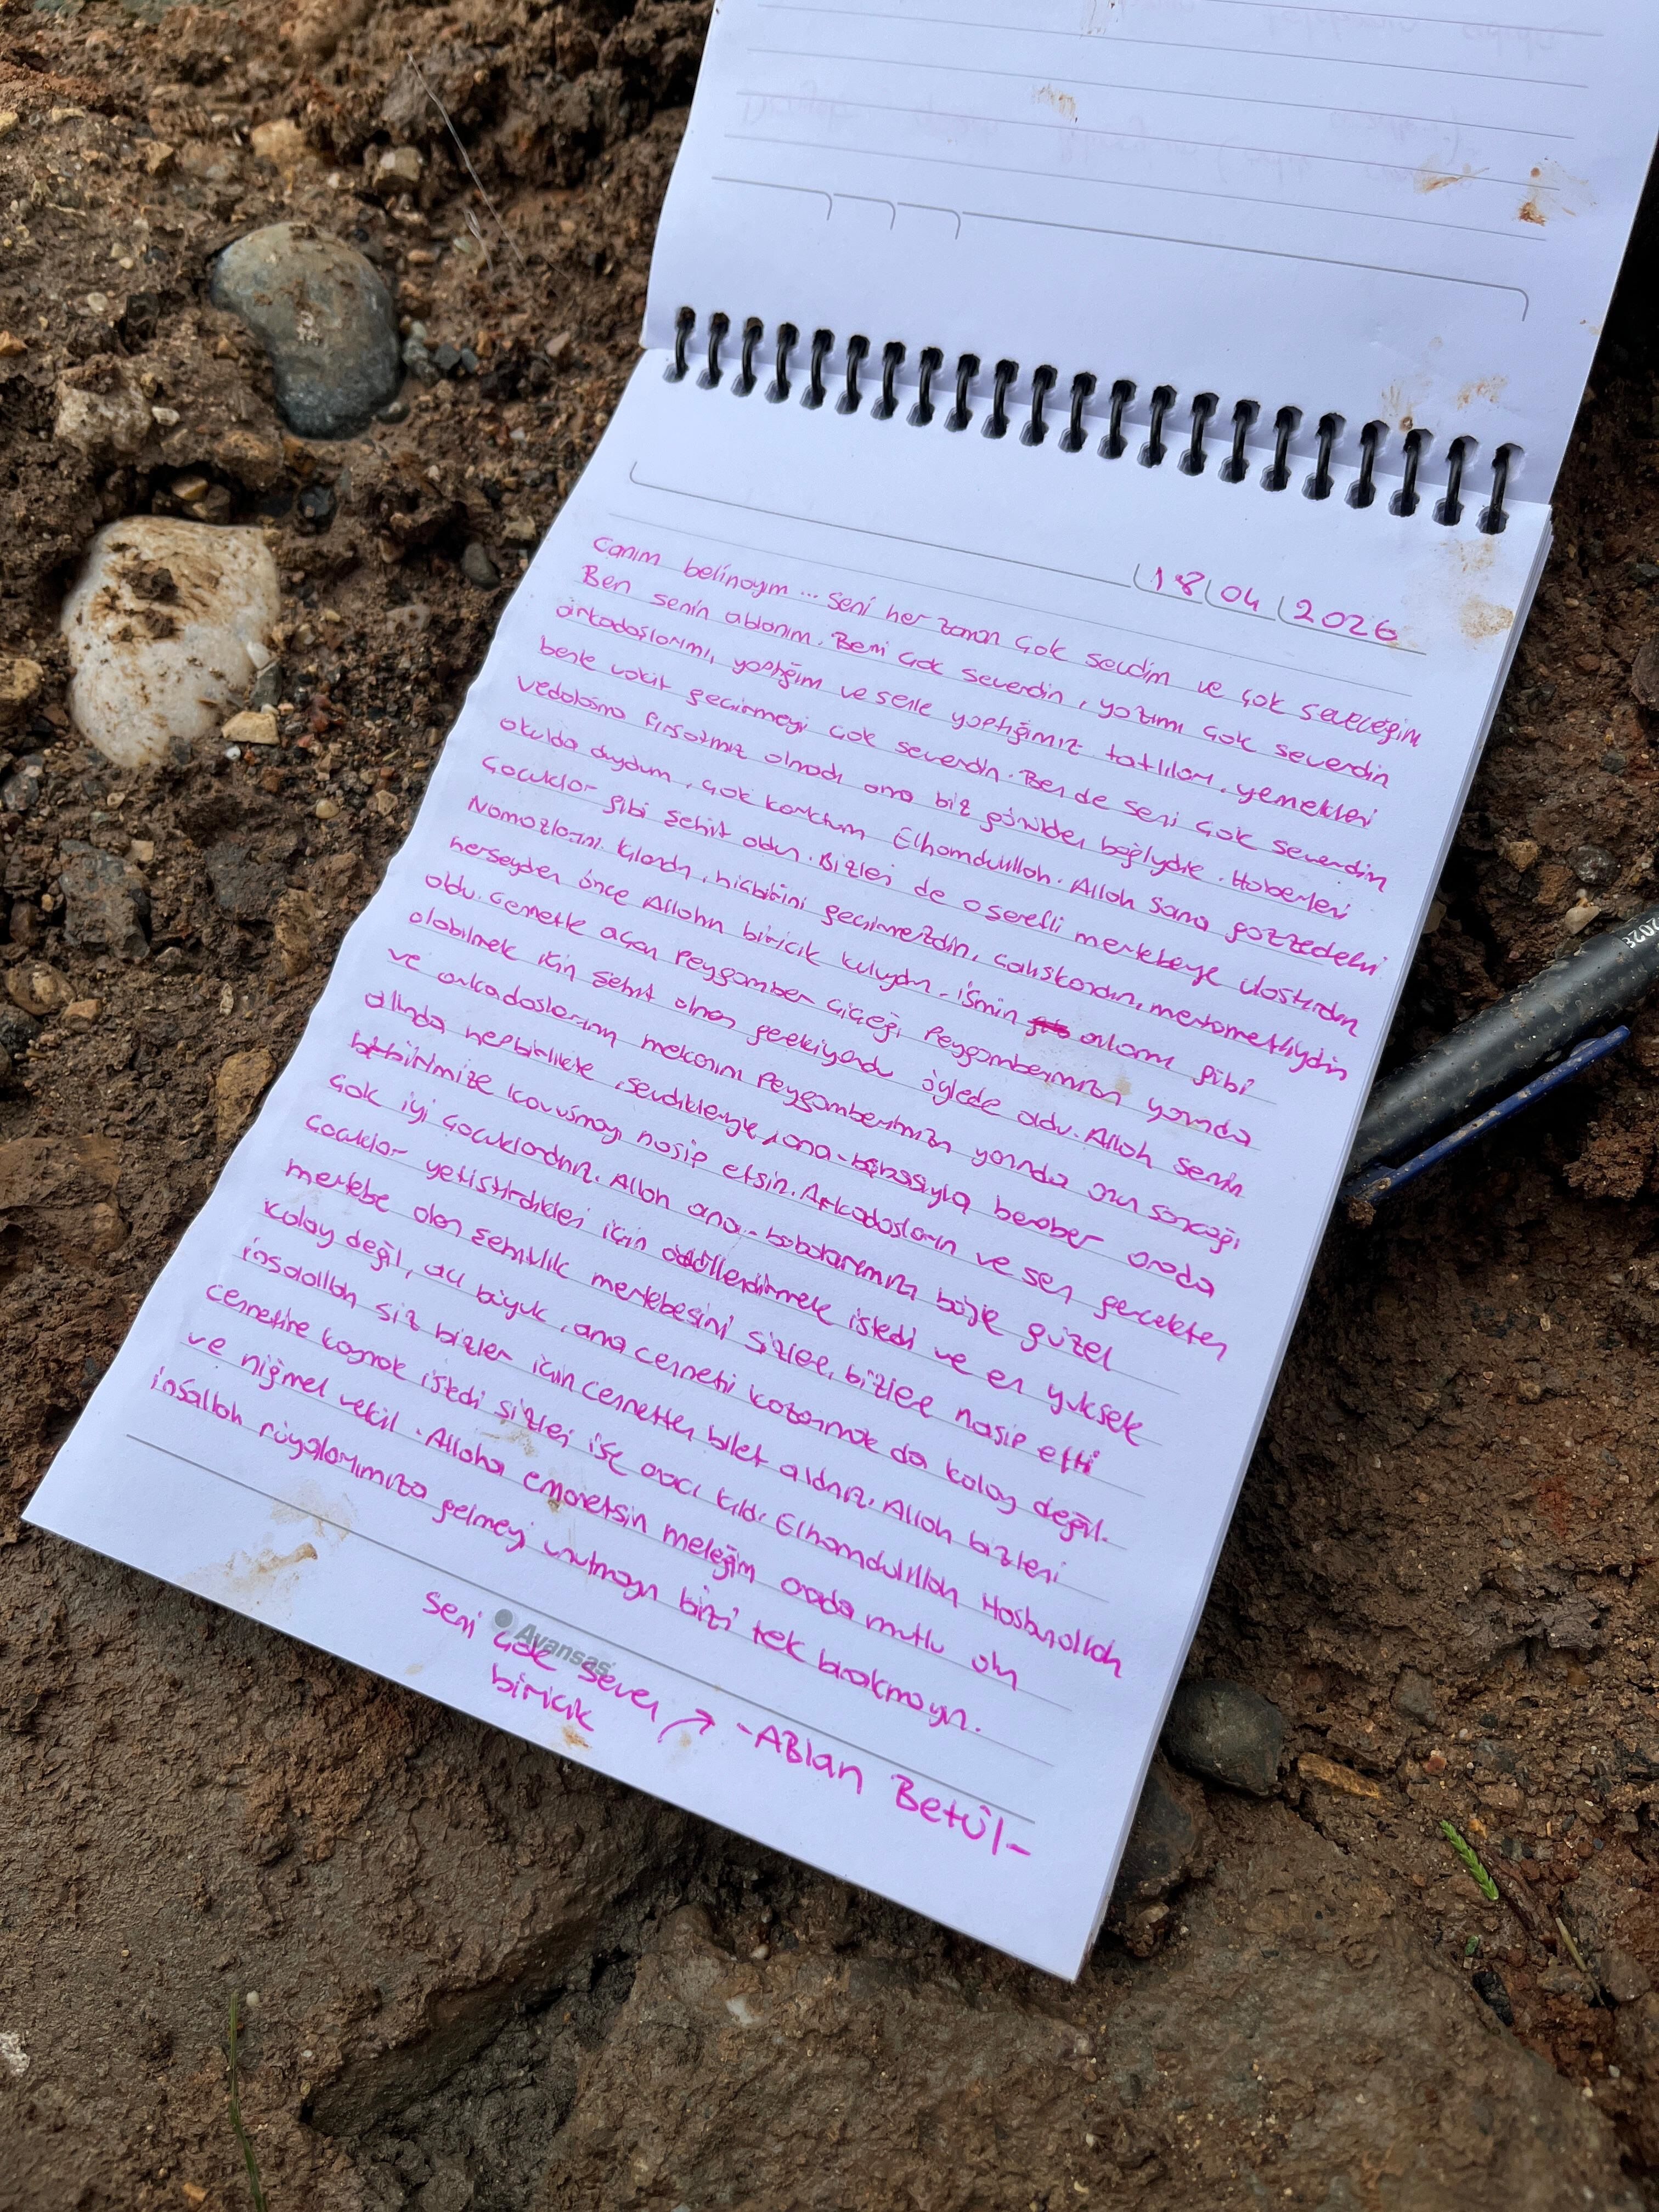 18/04/2026
Canım belinayım... Seni her zaman çok sevdim ve çok seveceğim
Ben senin ablanım. Beni çok severdin, yazımı çok severdin
arkadaşlarımı, yaptığım ve senle yaptığımız tatlıları, yemekleri
benle vakit geçirmeyi çok severdin. Ben de seni çok severdim
vedalaşma fırsatımız olmadı ama biz gönülden bağlıydık. Haberleri
okulda duydum, çok korktum Elhamdulillah. Allah sana gazzedeki
çocuklar gibi şehit oldun. Bizleri de o şerefli mertebeye ulaştırdın
Namazlarını kılardın, hiçbirini geçirmezdin, çalışkandın, merhametliydin
herşeyden önce Allahın biricik kuluydun. İsmin anlamı gibi
oldu. Cennette açan Peygamber çiçeği Peygamberimizin yanında
olabilmek için şehit olman gerekiyordu öylede oldu. Allah senin
ve arkadaşlarının mekanını Peygamberimizin yanında onun sancağı
altında hepbirlikte, sevdikleriyle, ana-babasıyla beraber orada
birbirimize kavuşmayı nasip etsin. Arkadaşların ve sen gerçekten
çok iyi çocuklardınız. Allah ana-babalarımızın böyle güzel
çocuklar yetiştirdikleri için ödüllendirmek istedi ve en yüksek
mertebe olan şehitlik mertebesini sizlere, bizlere nasip etti
kolay değil, acı büyük, ama cenneti kazanmak da kolay değil.
insalallah siz bizler için cennetten bilet aldınız. Allah bizleri
cennetine koymak istedi sizleri ise aracı kıldı. Elhamdulillah Hasbunallah
ve niğmel vekil. Allaha emanetsin meleğim orada mutlu ol
insallah rüyalarımıza gelmeyi unutmayın bizi tek bırakmayın.
Avansas
Seni çok seven ↗ -ABlan Betül-
biricik